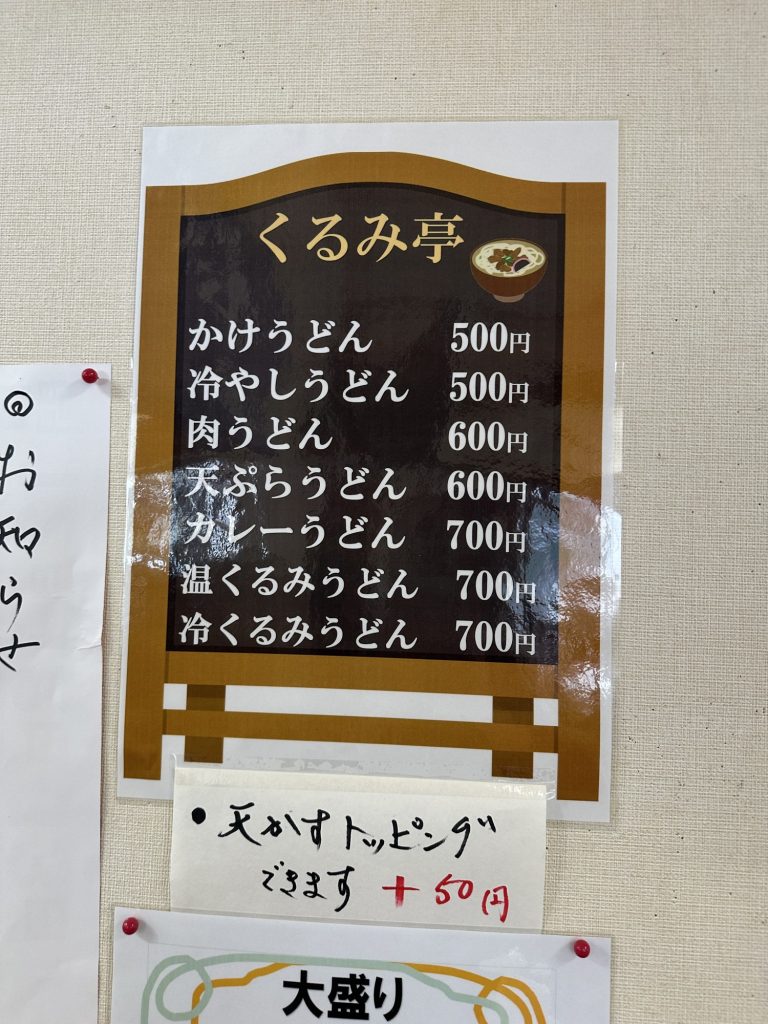 くるみ亭
かけうどん 500円
冷やしうどん 500円
肉うどん 600円
天ぷらうどん 600円
カレーうどん 700円
温くるみうどん 700円
冷くるみうどん 700円
• 天かすトッピング
できます +50円
大盛り
◎お知らせ